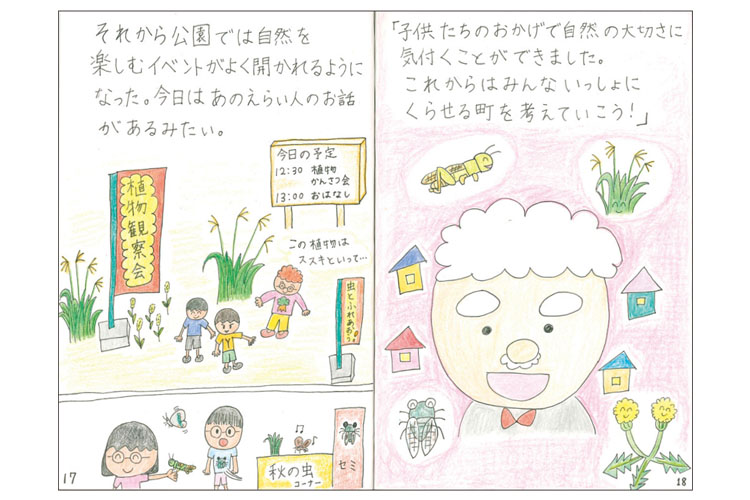 それから公園では自然を
楽しむイベントがよく開かれるように
なった。今日はあのえらい人のお話
があるみたい。
今日の予定
12:30 植物
かんさつ会
13:00 おはなし
植物観察会
この植物は
ススキといって…
虫とふれあおう
秋の虫
コーナー
セミ
17
「子供たちのおかげで自然の大切さに
気付くことができました。
これからはみんないっしょに
くらせる町を考えていこう!」
18